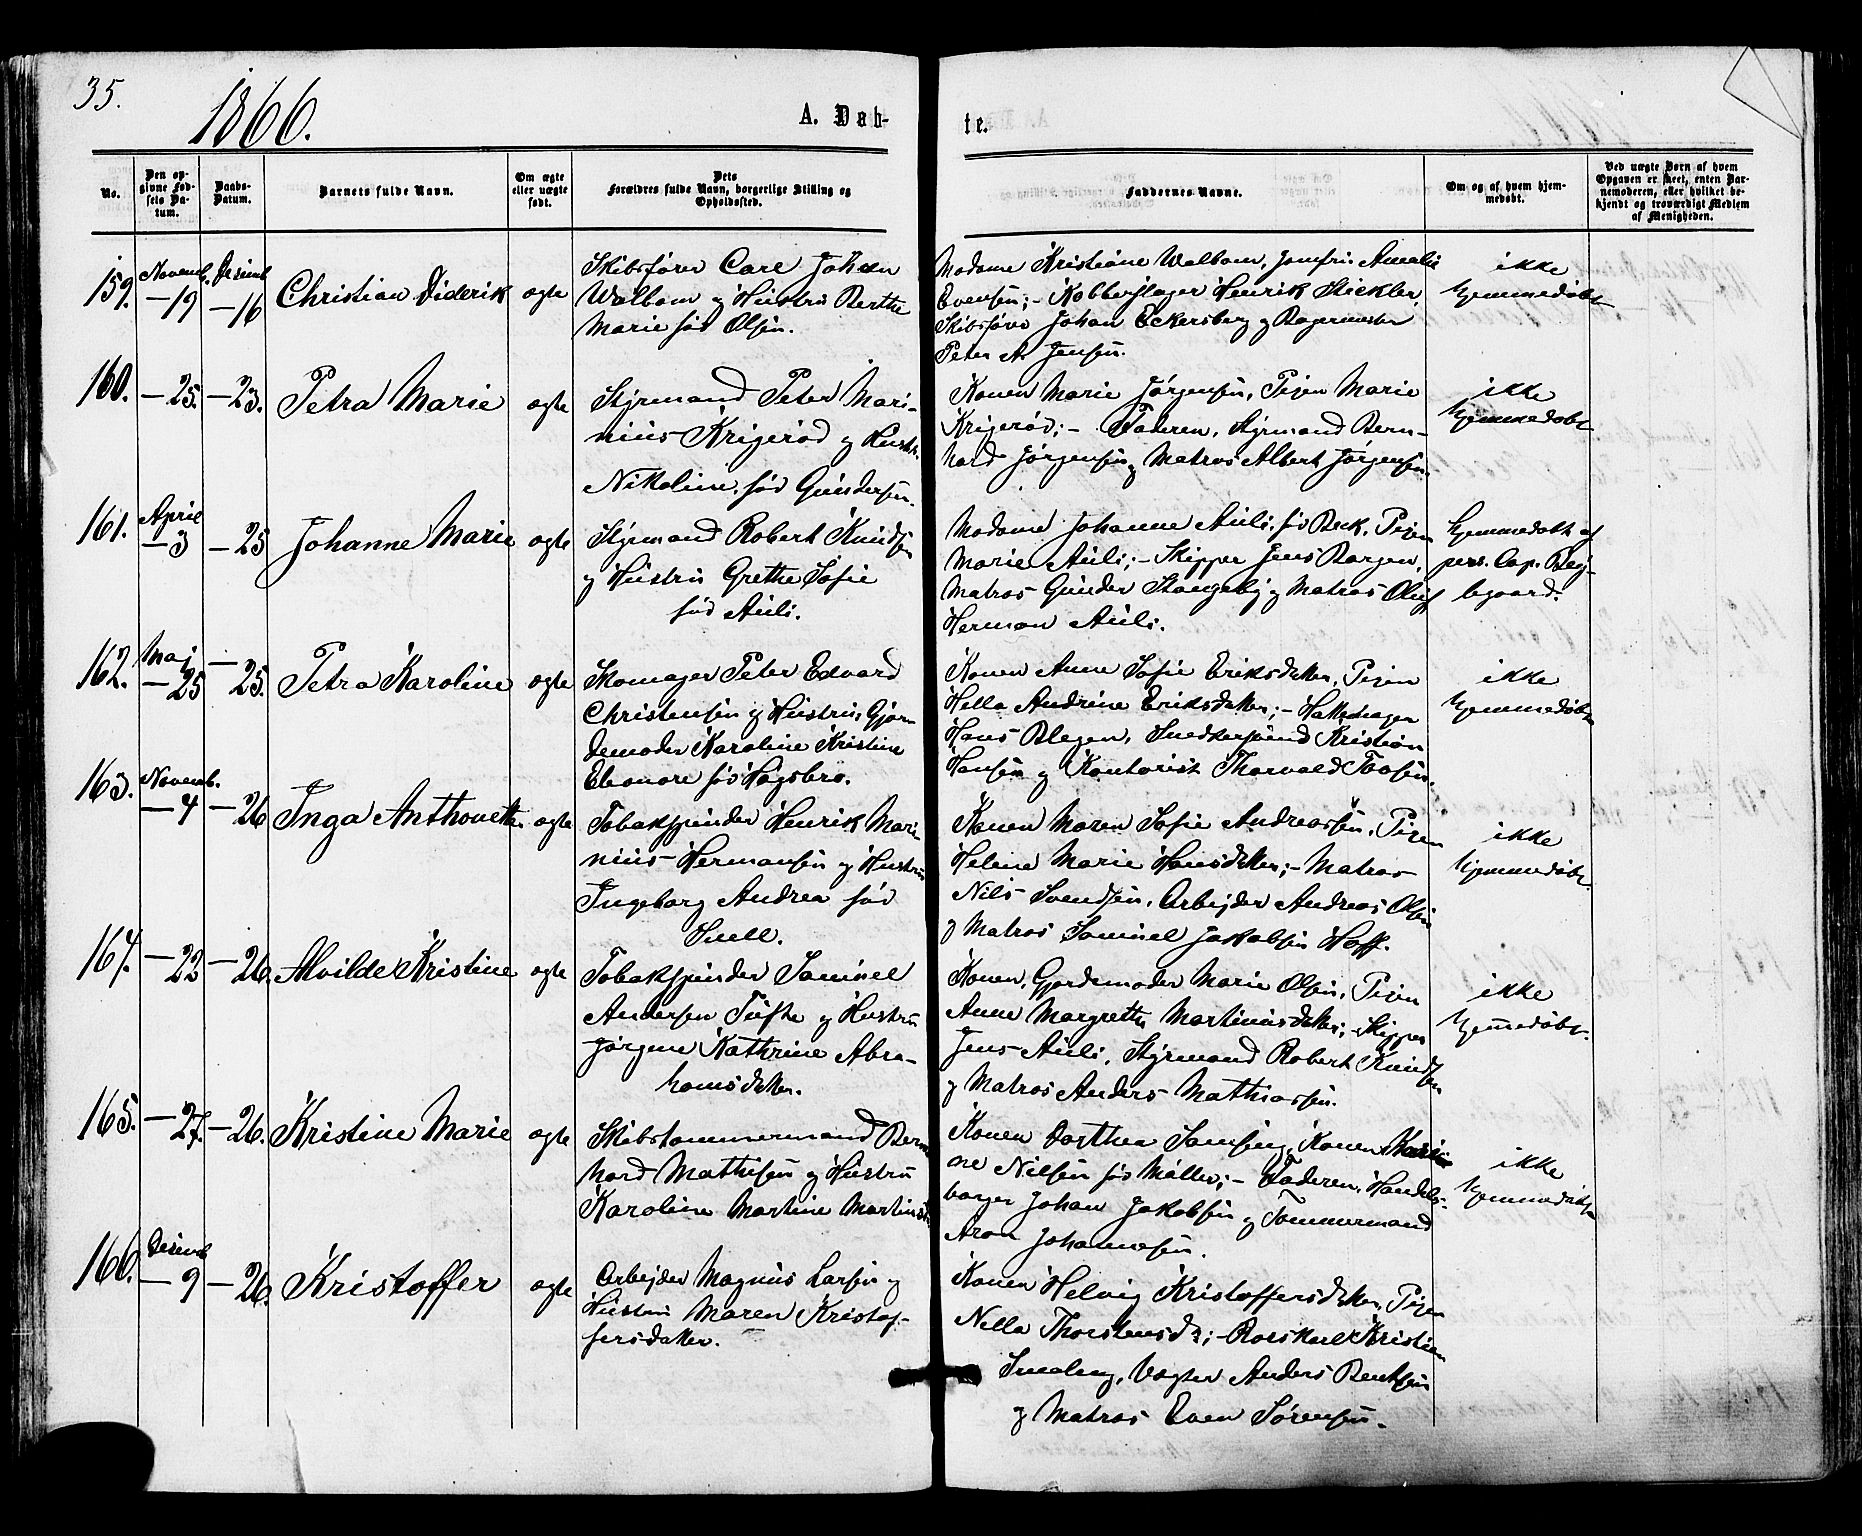 35.
1866.
A. Døb-
te.
No.
Den op-
givne Fød-
sels Da-
tum.
Daabs-
Datum.
Barnets fulde Navn.
Om ægte
eller uægte
født.
Dets
Forældres fulde Navn, borgerlige Stilling og
Opholdssted.
Faddernes Navne.
Om og af hvem hjem-
medøbt.
Ved uægte Børn af hvem
Opgaven er skeet, enten Bar-
nemoderen, eller hvilket be-
kjendt og troværdigt Medlem
af Menigheden.
159.
Novemb.
— 19
Desemb
— 16
Christian Diderik
ægte
Skibsfører Carl Johan
Walbom og Hustru Berthe
Marie fød Olsen.
Madame Kristiane Walbom, Jomfru Amalie
Evensen; – Kobberslager Henrik Stickler,
Skibsfører Johan Eckersberg og Bagermester
Peter A. Jensen.
ikke
hjemmedøbt
160.
— 25.
— 23.
Petra Marie
ægte
Styrmand Peter Mari-
nius Krigerød og Hustr.
Nikoline, fød Gundersen.
Konen Marie Jørgensen, Pigen Marie
Krigerød; – Faderen, Styrmand Bern-
hard Jørgensen og Matros Albert Jørgensen.
ikke
hjemmedøbt
161.
April
— 3
— 25
Johanne Marie
ægte
Styrmand Robert Knudsen
og Hustru Grethe Sofie
fød Auli.
Madame Johanne Auli, fød Beck, Pigen
Marie Auli; – Skipper Jens Borgen,
Matros Gunder Stangeby og Matros Oluf
Herman Auli.
hjemmedøbt af
pers. Cap. Bug-
begaard.
162.
Maj
— 25
— 25.
Petra Karoline
ægte
Skomager Peter Edvard
Christensen og Hustru, Gjor-
demoder Karoline Kristine
Eleonore fød Høgsbro.
Konen Anne Sofie Eriksdatter, Pigen
Hella Andrine Eriksdatter; – Hattemager
Hans Blegen, Snedkersvend Kristian
Hansen og Kontorist Thorvald Foosen.
ikke
hjemmedøbt
163.
Novemb.
— 4
— 26
Inga Anthonette
ægte
Tobakspinder Henrik Mari
nius Hermansen og Hustru
Ingeborg Andrea fød
Snell.
Konen Maren Sofie Andreassen, Pigen
Helene Marie Hansdatter; – Matros
Nils Svendsen, Arbejder Andreas Olsen
og Matros Samuel Jakobsen Hoff.
ikke
hjemmedøbt.
164.
— 22
— 26.
Alvilde Kristine
ægte
Tobakspinder Samuel
Andersen Tufte og Hustru
Jørgine Kathrine Abra-
hamsdatter.
Konen, Gjordemoder Marie Olsen, Pigen
Anne Margrethe Martiniusdatter; – Skipper
Jens Auli, Styrmand Robert Knudsen
og Matros Anders Mathiassen.
ikke
hjemmedøbt.
165.
— 27.
— 26.
Kristine Marie
ægte
Skibstømmermand Bern
hard Mathisen og Hustru
Karoline Martine Martinsd.
Konen Dorthea Samsing, Konen Kari
ne Nilsen fød Møller; – Faderen, Handels-
borger Johan Jakobsen og Tømmermand
Aron Johannesen.
ikke
hjemmedøbt
166.
Desemb
— 9
— 26.
Kristoffer
ægte
Arbejder Magnus Larsen og
Hustru Maren Kristof-
fersdatter.
Konen Helvig Kristoffersdatter, Pigen
Nella Thorstensd.; – Rorskarl Kristian
Smeling, Vægter Anders Bentsen
og Matros Even Sørensen.